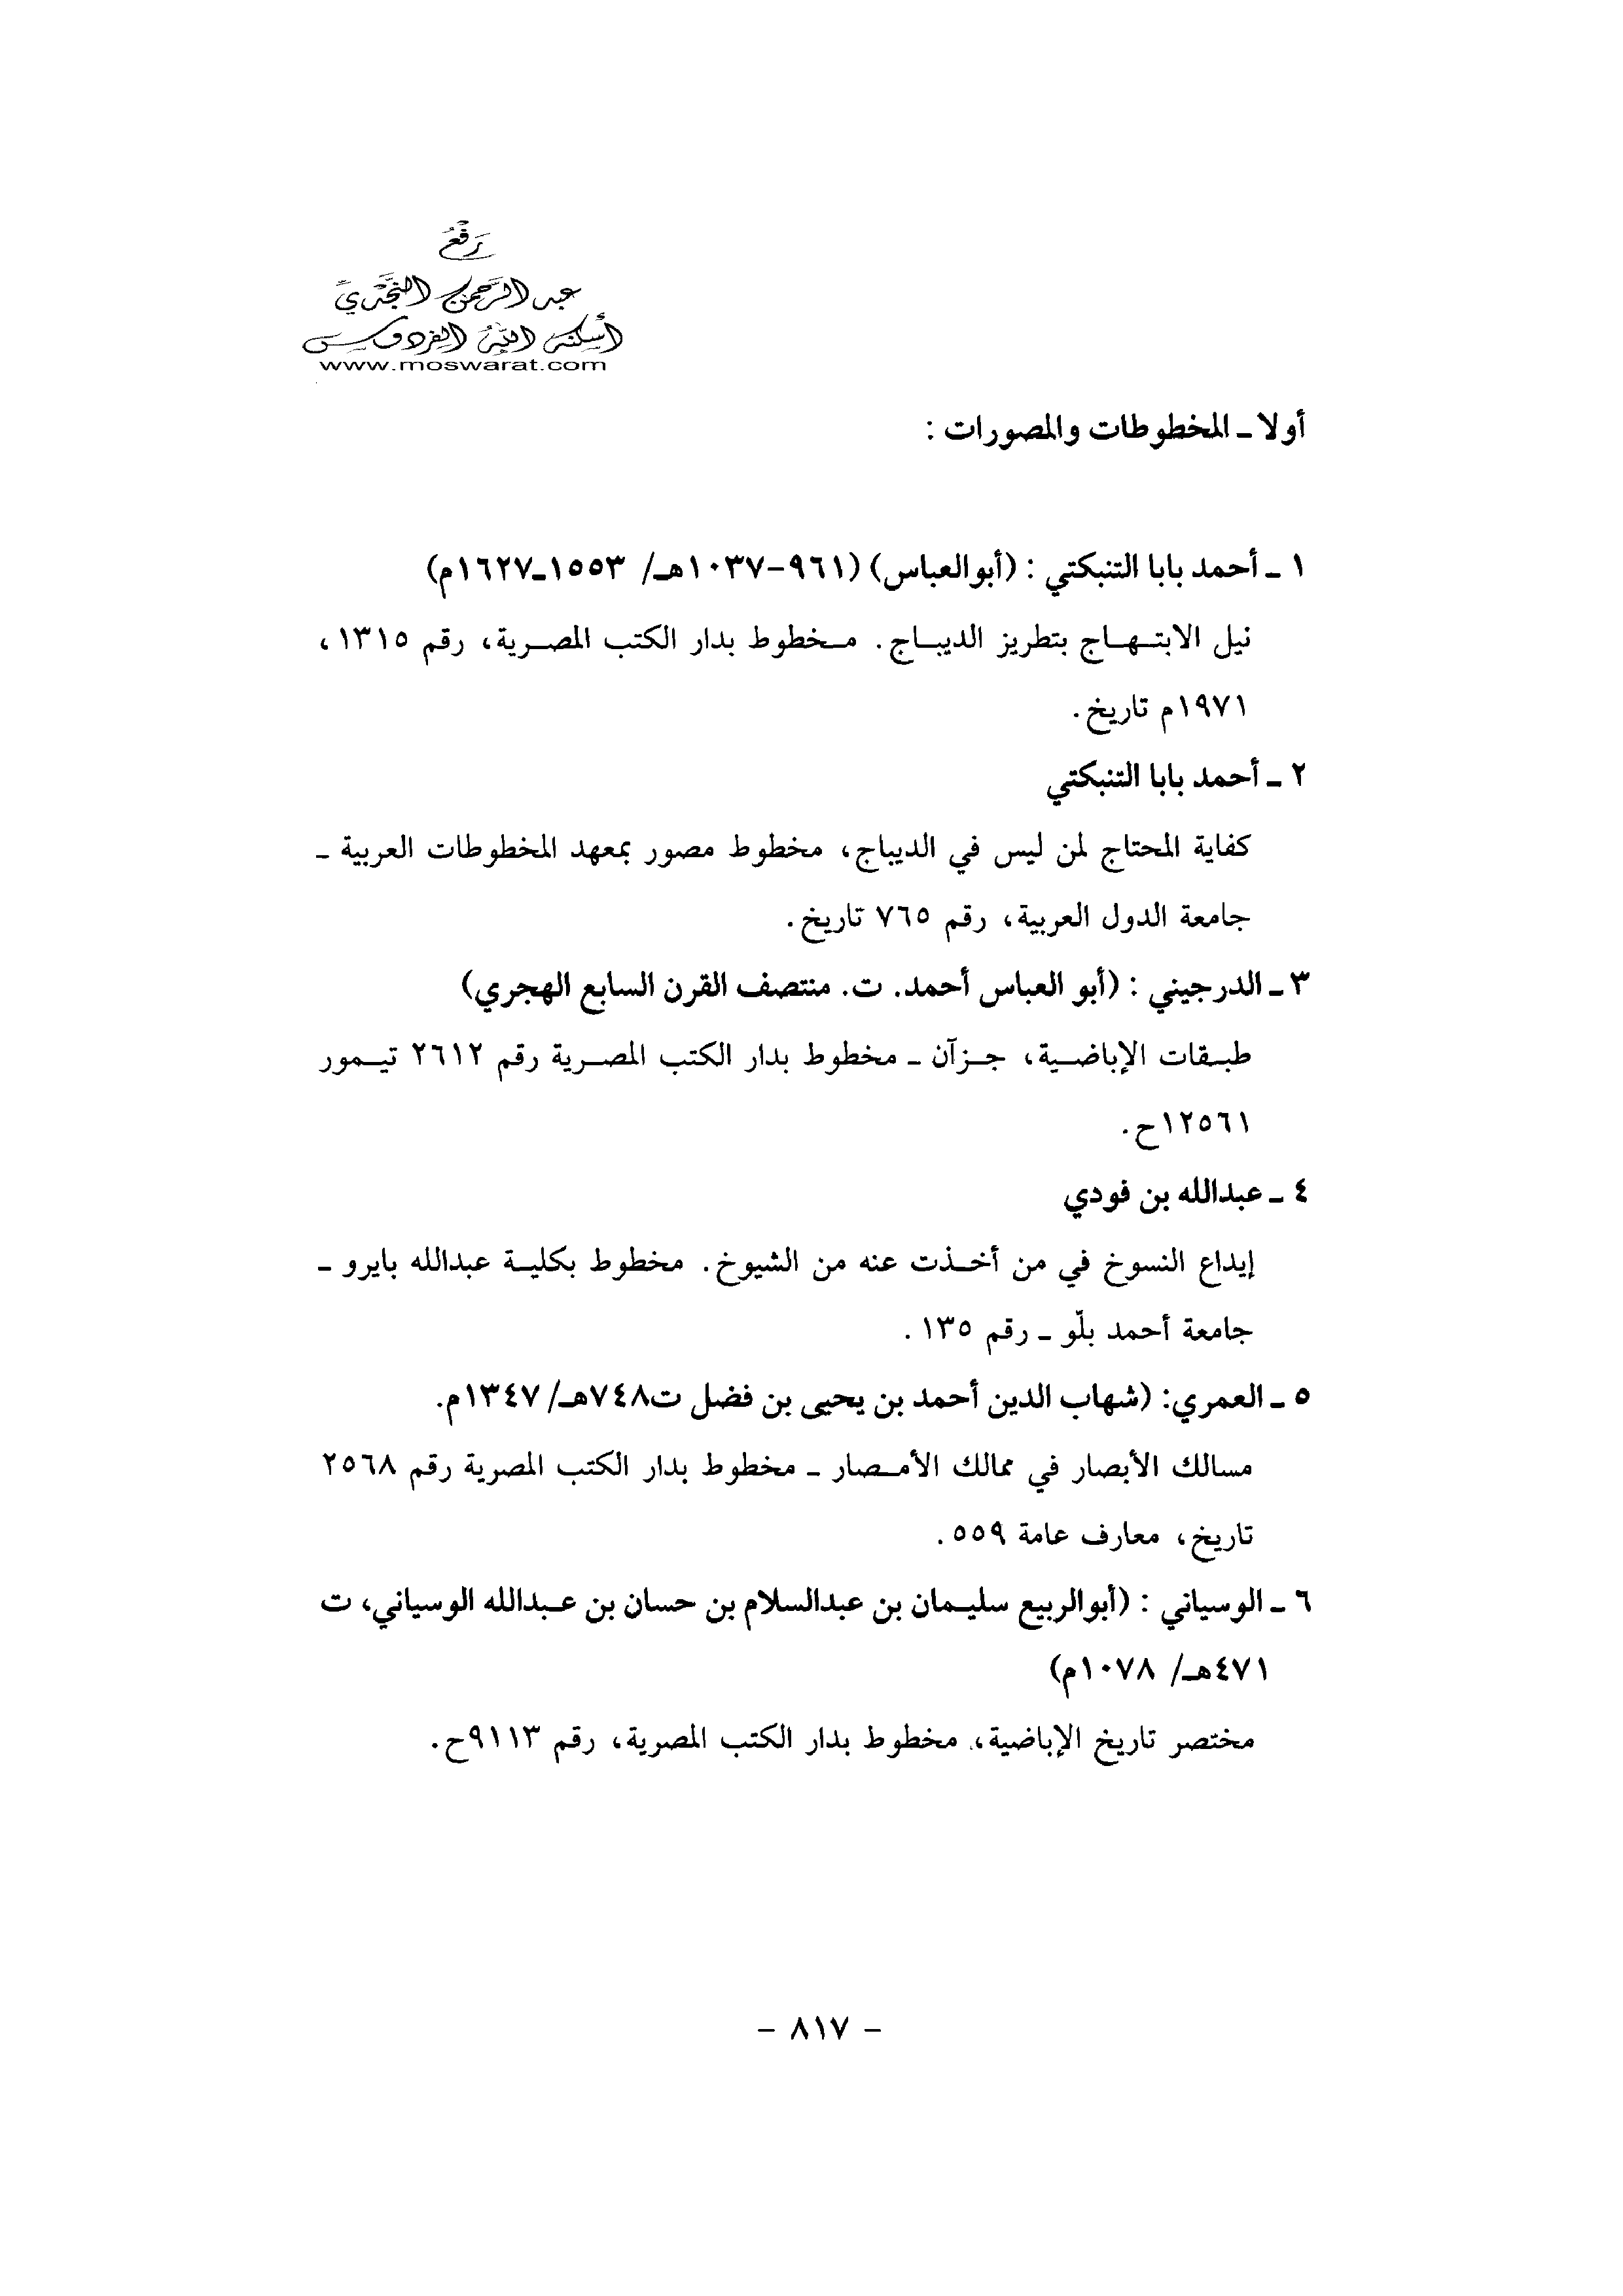 رَفْعُ
عبد الرحمن النجدي
أسكنه الله الفردوس
www.moswarat.com
أولا ـ المخطوطات والمصورات :
١ ـ أحمد بابا التنبكتي : (أبوالعباس) (٩٦١-١٠٣٧هـ/ ١٥٥٣ـ١٦٢٧م)
نيل الابتهاج بتطريز الديباج. مخطوط بدار الكتب المصرية، رقم ١٣١٥،
١٩٧١م تاريخ.
٢ ـ أحمد بابا التنبكتي
كفاية المحتاج لمن ليس في الديباج، مخطوط مصور بمعهد المخطوطات العربية ـ
جامعة الدول العربية، رقم ٧٦٥ تاريخ.
٣ ـ الدرجيني : (أبو العباس أحمد. ت. منتصف القرن السابع الهجري)
طبقات الإباضية، جزآن ـ مخطوط بدار الكتب المصرية رقم ٢٦١٢ تيمور
١٢٥٦١ح.
٤ ـ عبدالله بن فودي
إيداع النسوخ في من أخذت عنه من الشيوخ. مخطوط بكلية عبدالله بايرو ـ
جامعة أحمد بلّو ـ رقم ١٣٥.
٥ ـ العمري: (شهاب الدين أحمد بن يحيى بن فضل ت٧٤٨هـ/ ١٣٤٧م.
مسالك الأبصار في ممالك الأمصار ـ مخطوط بدار الكتب المصرية رقم ٢٥٦٨
تاريخ، معارف عامة ٥٥٩.
٦ ـ الوسياني : (أبوالربيع سليمان بن عبدالسلام بن حسان بن عبدالله الوسياني، ت
٤٧١هـ/ ١٠٧٨م)
مختصر تاريخ الإباضية، مخطوط بدار الكتب المصرية، رقم ٩١١٣ح.
- ٨١٧ -